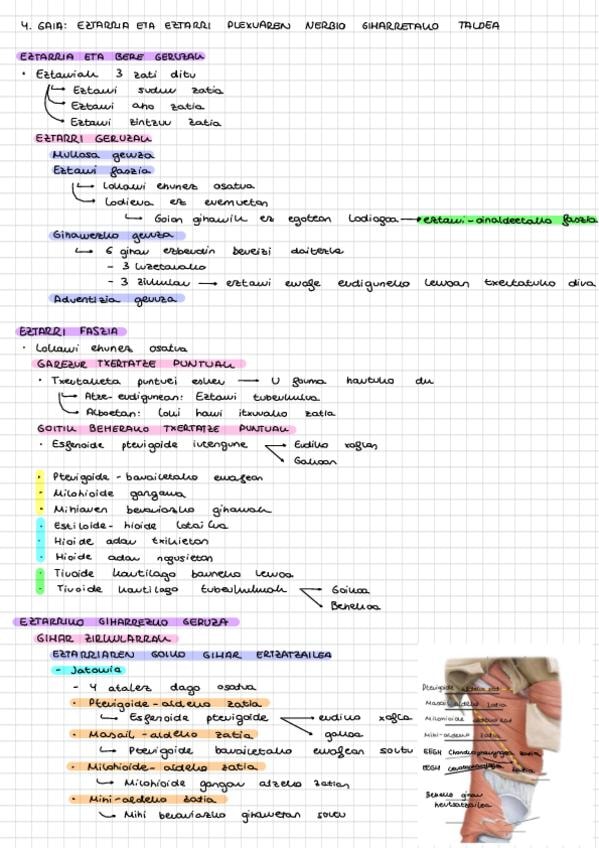 4. GAIA: EZTARRIA ETA EZTARRI PLEXUAREN NERBIO GIHARRETAKO TALDEA
EZTARRIA ETA BERE GERUZAK
· Eztarriak 3 zati ditu
→ Eztarri sudur zatia
→ Eztarri aho zatia
→ Eztarri zintzur zatia
EZTARRI GERUZAK
Mukosa geruza
Eztarri faszia
→ Lokarri ehunez osatua
→ Lodiera ez eremuetan
→ Goian giharrik ez egotean lodiagoa → eztarri-oinaldeetako faszia
Giharrezko geruza
→ 6 gihar ezberdin bereizi daitezke
- 3 luzetarako
- 3 zirkular → eztarri erroje erdiguneko lerroan txertatuko dira
Adventizia geruza
EZTARRI FASZIA
· Lokarri ehunez osatua
GAREZUR TXERTATZE PUNTUAK
· Txertaketa puntuei esker → U forma hartuko du
→ Atze-erdigunean: Eztarri tuberkulua
→ Alboetan: Loki harri itxurako zatia
GOITIK BEHERAKO TXERTATZE PUNTUAK
· Esfenoide pterigoide irtengune → Erdiko xaflan
→ Gakoan
· Pterigoide-barailetako errafean
· Milohioide gangarra
· Mihiaren berariazko giharrak
· Estiloide-hioide lotailua
· Hioide adar txikietan
· Hioide adar nagusietan
· Tiroide kartilago barneko lerroa
· Tiroide kartilago tuberkuluak → Goikoa
→ Behekoa
EZTARRIKO GIHARREZKO GERUZA
GIHAR ZIRKULARRAK
EZTARRIAREN GOIKO GIHAR ERTZATZAILEA
- Jatorria
- 4 atalez dago osatua
· Pterigoide-aldeko zatia
→ Esfenoide pterigoide → erdiko xafla
→ gakoa
· Masail-aldeko zatia
→ Pterigoide barailetako errafean sortu
· Milohioide-aldeko zatia
→ Milohioide gangar atzeko zatian
· Mihi-aldeko zatia
→ Mihi berariazko giharretan sortu
Pterigoide aldeko zat
Masail aldeko zatia
Milohioide aldeko zat
Mihi-aldeko zatia
EEGH Chondropharyngea zatia
EEGH zatia
Beheko gihar
hertsatzailea